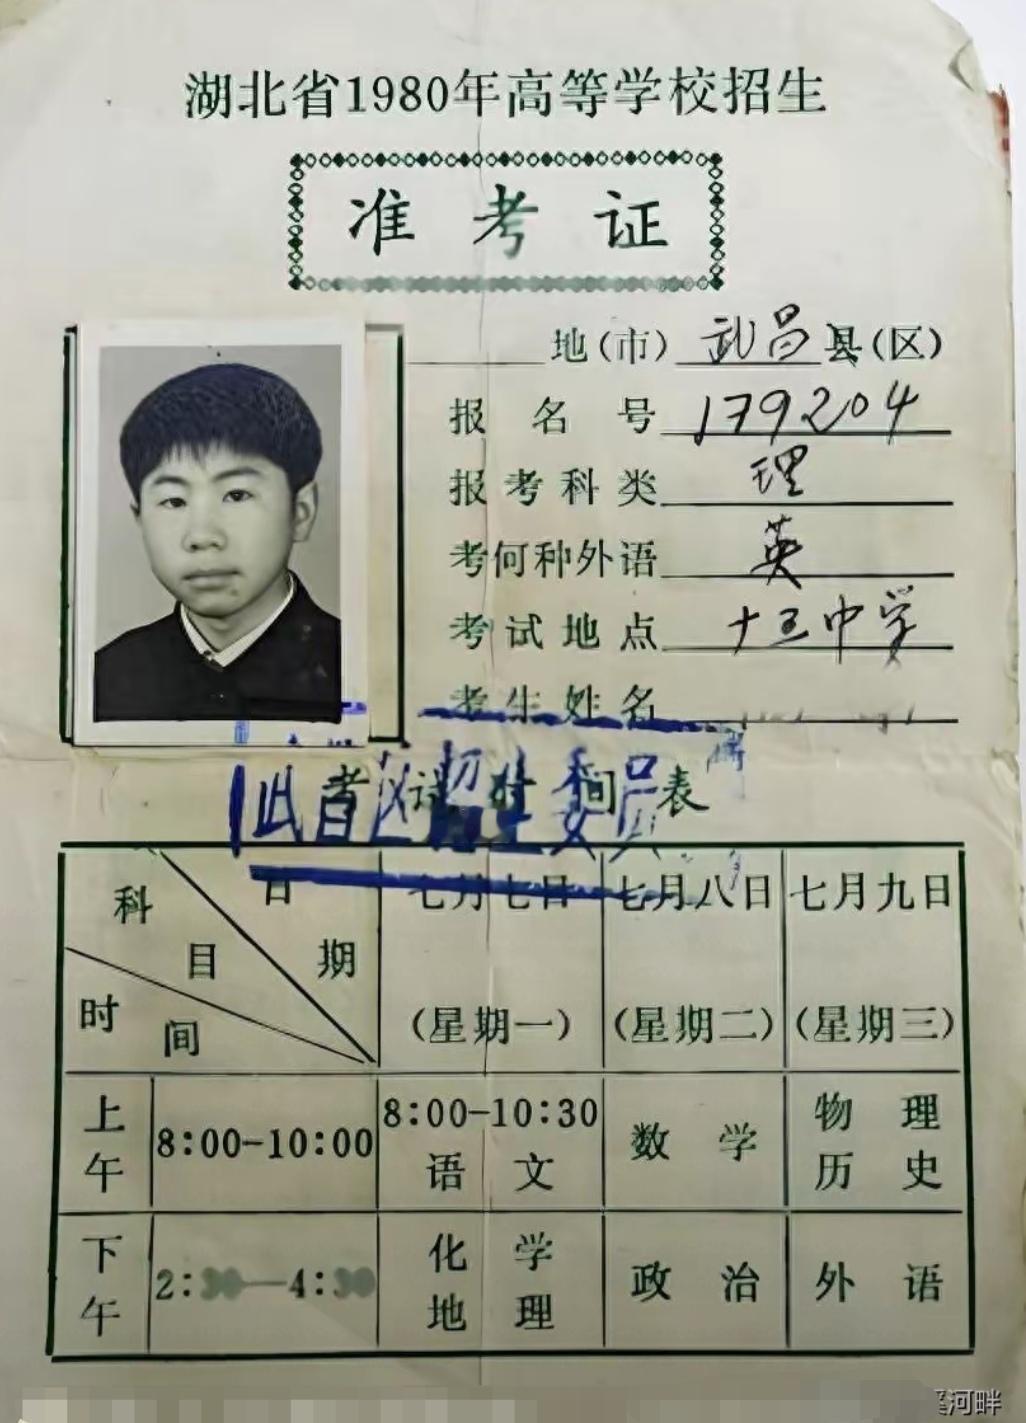 湖北省1980年高等学校招生
准考证
地(市) 武昌县(区)
报名号 179204
报考科类 理
考何种外语 英
考试地点 十五中学
考生姓名
间表
科目 日期 时间
七月七日 七月八日 七月九日
(星期一) (星期二) (星期三)
上午 8:00-10:00 8:00-10:30 语文 数学 物理 历史
下午 2:30—4:30 化学 地理 政治 外语
河畔